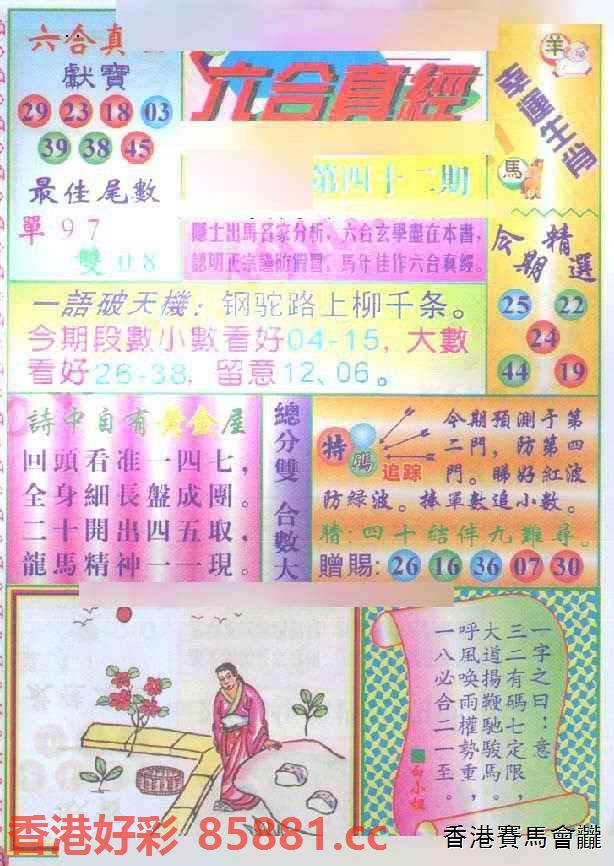 六合真
獻寶
29 23 18 03
39 38 45
最佳尾數
單 9 7
雙 0 8
六合真經
第四十二期
隱士出馬名家分析，六合玄學盡在本書，
認明正宗謹防假冒，馬年佳作六合真經。
羊
幸運生肖
馬
今期精選
25 22
24
44 19
一語破天機：钢驼路上柳千条。
今期段數小數看好04-15，大數
看好26-38，留意12、06。
詩中自有黃金屋
回頭看准一四七，
全身細長盤成團。
二十開出四五取，
龍馬精神一一現。
總分雙 合數大
特碼
追踪
今期預測予第
二門，防第四
門。睇好紅波
防綠波。捧單數追小數。
猜：四十结伴九難尋。
贈賜：26 16 36 07 30
一字之曰：意
三二有碼七定限，
大道揚鞭馳駿馬。
呼風喚雨權勢重，
一八必合二一至。
白小姐
香港好彩 85881.cc
香港賽馬會